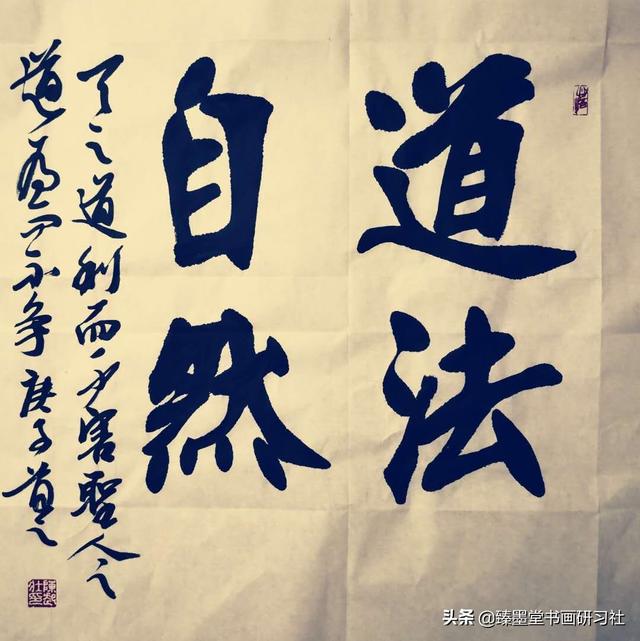 道法
自然
天之道利而不害聖人之
道為而不争庚子首之
头条 @臻墨堂书画研习社